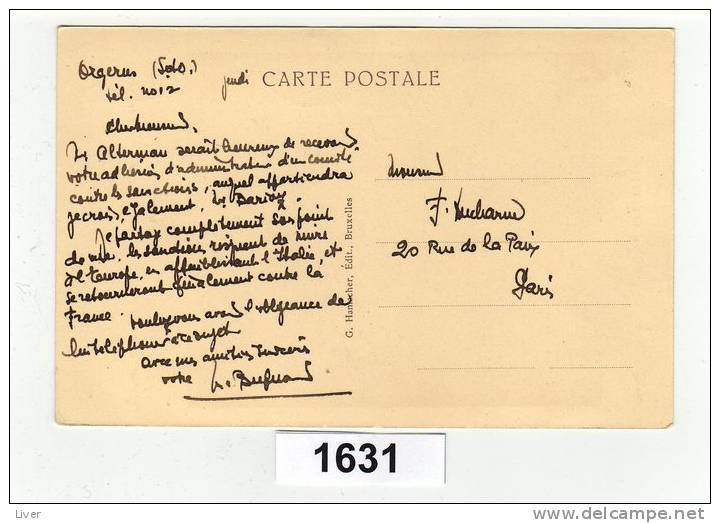 Orgerus (S&O.)
tél. no 12
jeudi
CARTE POSTALE
Cher Monsieur,
M. Alterman serait heureux de recevoir
votre adhésion d'administrateur d'un comité
contre les sanctions, auquel appartiendra
je crois, également, M. Dariac.
Je partage complètement son point
de vue. les sanctions risquent de nuire
à l'Europe, en affaiblissant l'Italie, et
se retourneront finalement contre la
France.
Voulez vous avoir l'obligeance de
lui téléphoner à ce sujet
avec mes amitiés
votre
Monsieur
F. Ducharne
20 Rue de la Paix
Paris
Édit., Bruxelles
1631
Liver
delcampe.net